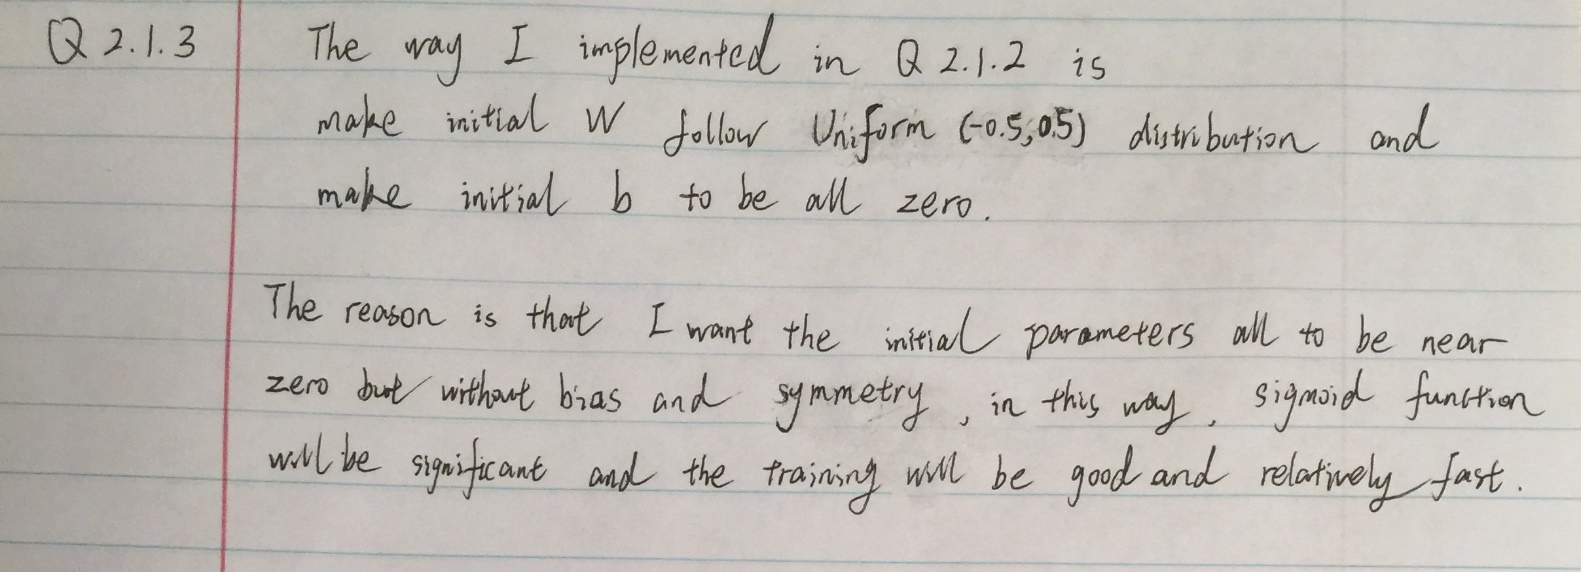 Q 2.1.3 The way I implemented in Q 2.1.2 is
make initial W follow Uniform (-0.5, 0.5) distribution and
make initial b to be all zero.
The reason is that I want the initial parameters all to be near
zero but without bias and symmetry, in this way, sigmoid function
will be significant and the training will be good and relatively fast.